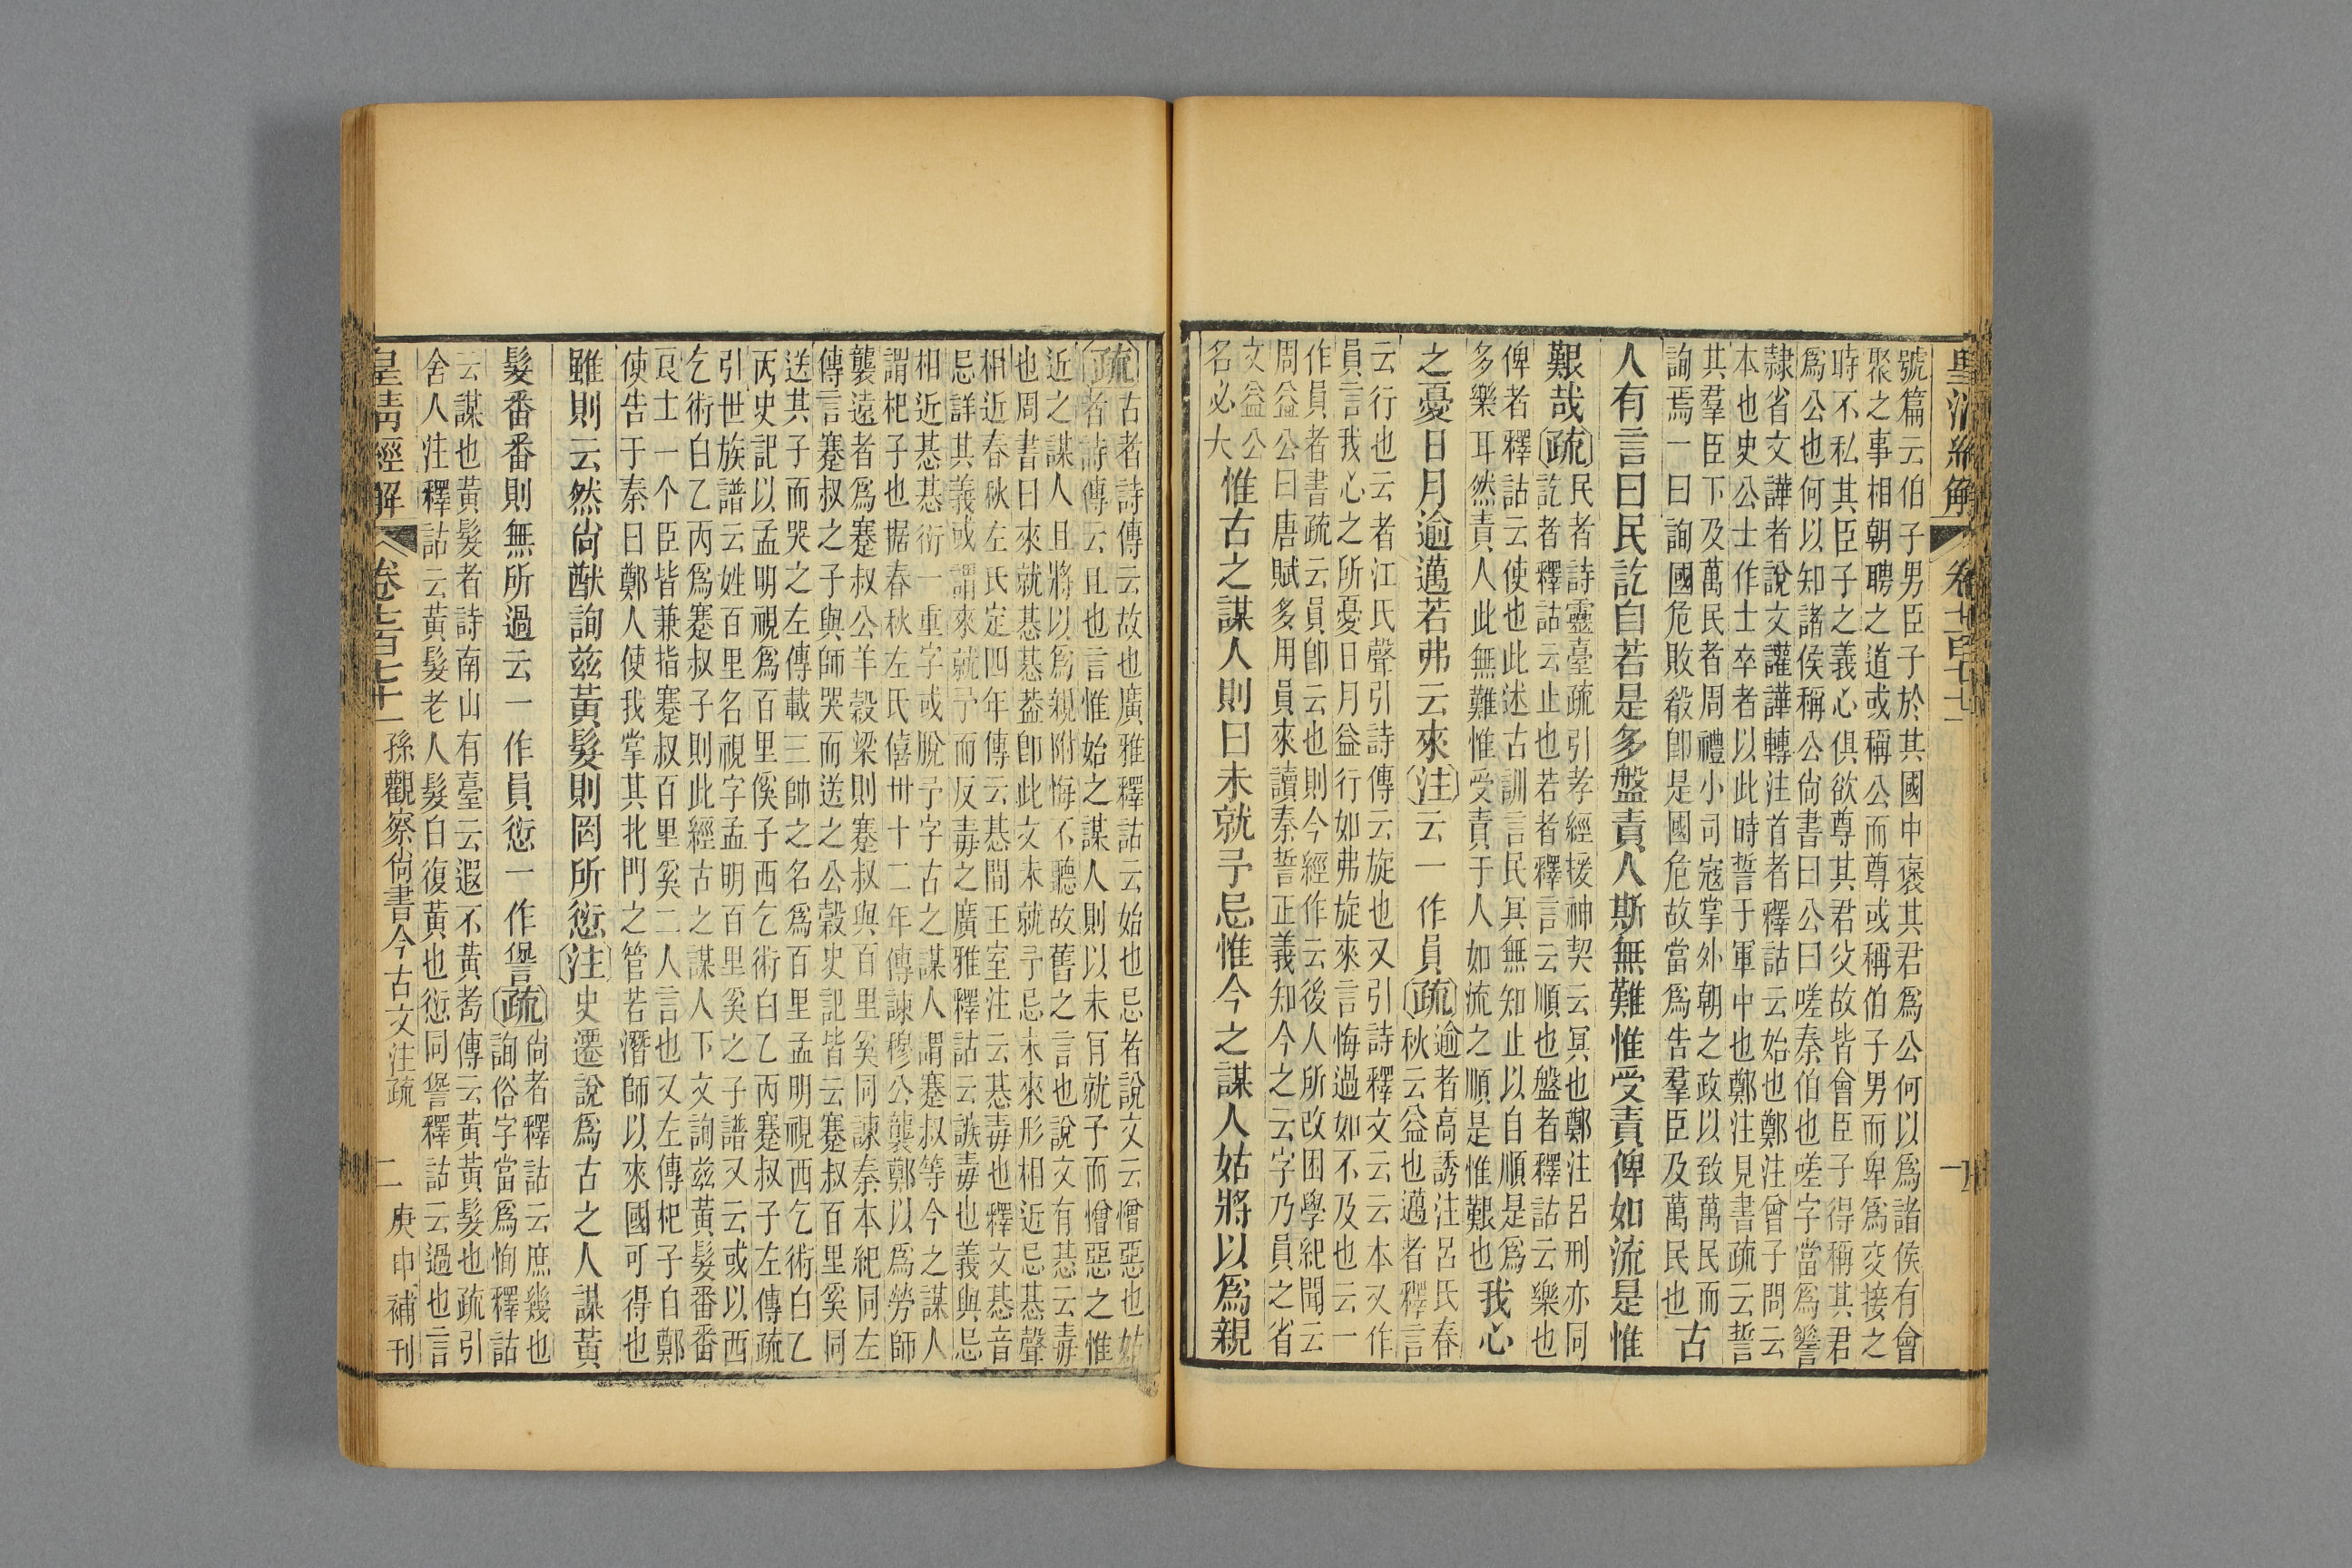 皇清經解 卷七百七十一
號篇云伯子男臣子於其國中襃其君爲公何以爲諸侯有會
聚之事相朝聘之道或稱公而尊或稱伯子男而卑爲交接之
時不私其臣子之義心俱欲尊其君父故皆會臣子得稱其君
爲公也何以知諸侯稱公尙書曰公曰嗟秦伯也嗟字當爲𧬬
隸省文譁者說文讙譁轉注首者釋詁云始也鄭注曾子問云
本也史公士作士卒者以此時誓于軍中也鄭注見書疏云誓
其羣臣下及萬民者周禮小司寇掌外朝之政以致萬民而
詢焉一曰詢國危敗殽卽是國危故當爲告羣臣及萬民也 古
人有言曰民訖自若是多盤責人斯無難惟受責俾如流是惟
艱哉疏民者詩靈臺疏引孝經援神契云冥也鄭注呂刑亦同
訖者釋詁云止也若者釋言云順也盤者釋詁云樂也
俾者釋詁云使也此述古訓言民冥無知止以自順是爲
多樂耳然責人此無難惟受責于人如流之順是惟艱也 我心
之憂日月逾邁若弗云來注云一作員疏逾者高誘注呂氏春
秋云益也邁者釋言
云行也云者江氏聲引詩傳云旋也又引詩釋文云云本又作
員言我心之所憂日月益行如弗旋來言悔過如不及也云一
作員者書疏云員卽云也則今經作云後人所改困學紀聞云
周益公曰唐賦多用員來讀秦誓正義知今之云字乃員之省
文益公
名必大 惟古之謀人則曰未就予忌惟今之謀人姑將以爲親
疏古者詩傳云故也廣雅釋詁云始也忌者說文云憎惡也姑
者詩傳云且也言惟始之謀人則以未肎就予而憎惡之惟
近之謀人且將以爲親附悔不聽故舊之言也說文有惎云毒
也周書曰來就惎惎葢卽此文未就予忌未來形相近忌惎聲
相近春秋左氏定四年傳云惎間王室注云惎毒也釋文惎音
忌詳其義或謂來就予而反毒之廣雅釋詁云諅毒也義與忌
相近惎惎衍一重字或脫予字古之謀人謂蹇叔等今之謀人
謂杞子也据春秋左氏僖卅十二年傳諫穆公襲鄭以爲勞師
襲遠者爲蹇叔公羊穀梁則蹇叔與百里奚同諫秦本紀同左
傳言蹇叔之子與師哭而送之公穀史記皆云蹇叔百里奚同
送其子而哭之左傳載三帥之名爲百里孟明視西乞術白乙
丙史記以孟明視爲百里傒子西乞術白乙丙蹇叔子左傳疏
引世族譜云姓百里名視字孟明百里奚之子譜又云或以西
乞術白乙丙爲蹇叔子則此經古之謀人下文詢茲黃髮番番
良士一个臣皆兼指蹇叔百里奚二人言也又左傳杞子自鄭
使告于秦曰鄭人使我掌其北門之管若潛師以來國可得也
雖則云然尙猷詢茲黃髮則罔所愆注史遷說爲古之人謀黃
髮番番則無所過云一作員愆一作諐疏尙者釋詁云庶幾也
詢俗字當爲恂釋詁
云謀也黃髮者詩南山有臺云遐不黃耉傳云黃黃髮也疏引
舍人注釋詁云黃髮老人髮白復黃也愆同諐釋詁云過也言
皇清經解 卷七百七十一 孫觀察尙書今古文注疏 二 庚申補刊